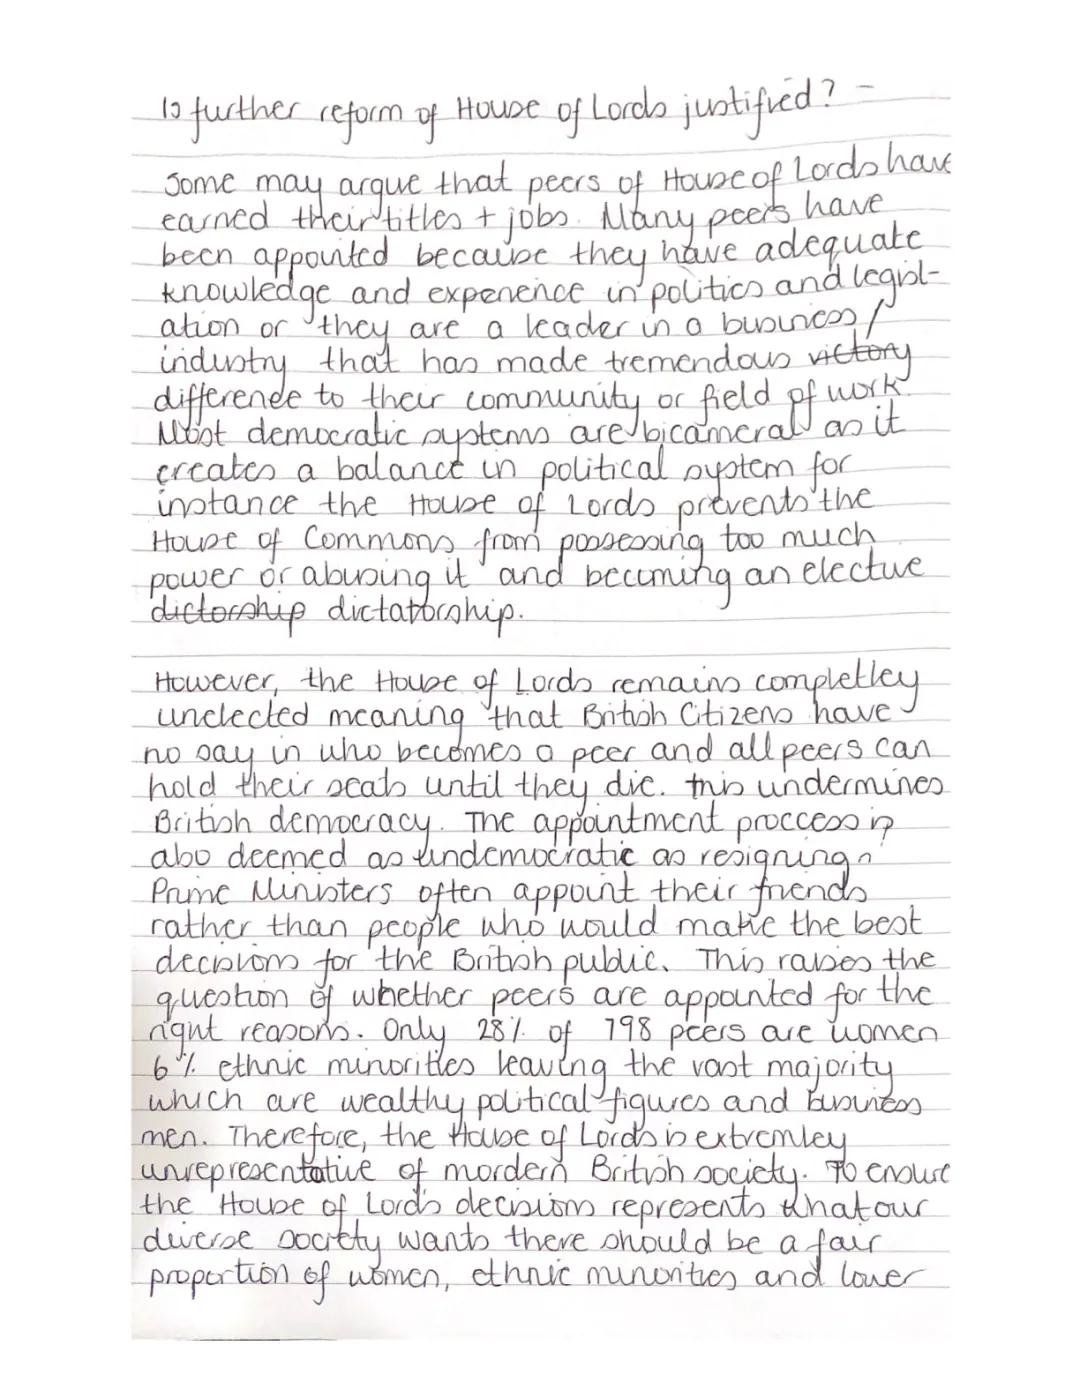 Is further reform of House of Lords justified? -
Some may argue that peers of House of Lords have
earned their titles + jobs. Many peers have
been appointed because they have adequate
knowledge and experience in politics and legisl-
ation or they are a leader in a business/
industry that has made tremendous victory
difference to their community or field of work.
Most democratic systems are bicameral as it
creates a balance in political system for
instance the House of Lords prevents the
House of Commons from possessing too much
power or abusing it and becoming an elective
dictorship dictatorship.
However, the House of Lords remains completley
unelected meaning that British Citizens have
no say in who becomes a peer and all peers can
hold their seats until they die. this undermines
British democracy. The appointment proccess is
also deemed as undemocratic as resigning
Prime Ministers often appoint their friends
rather than people who would make the best
decisions for the British public. This raises the
question of whether peers are appointed for the
right reasons. Only 28% of 798 peers are women
6% ethnic minorities leaving the vast majority
which are wealthy political figures and business
men. Therefore, the House of Lords is extremley
unrepresentative of mordern British society. To ensure
the House of Lord's decisions represents what our
diverse society wants there should be a fair
proportion of women, ethnic minorities and lower